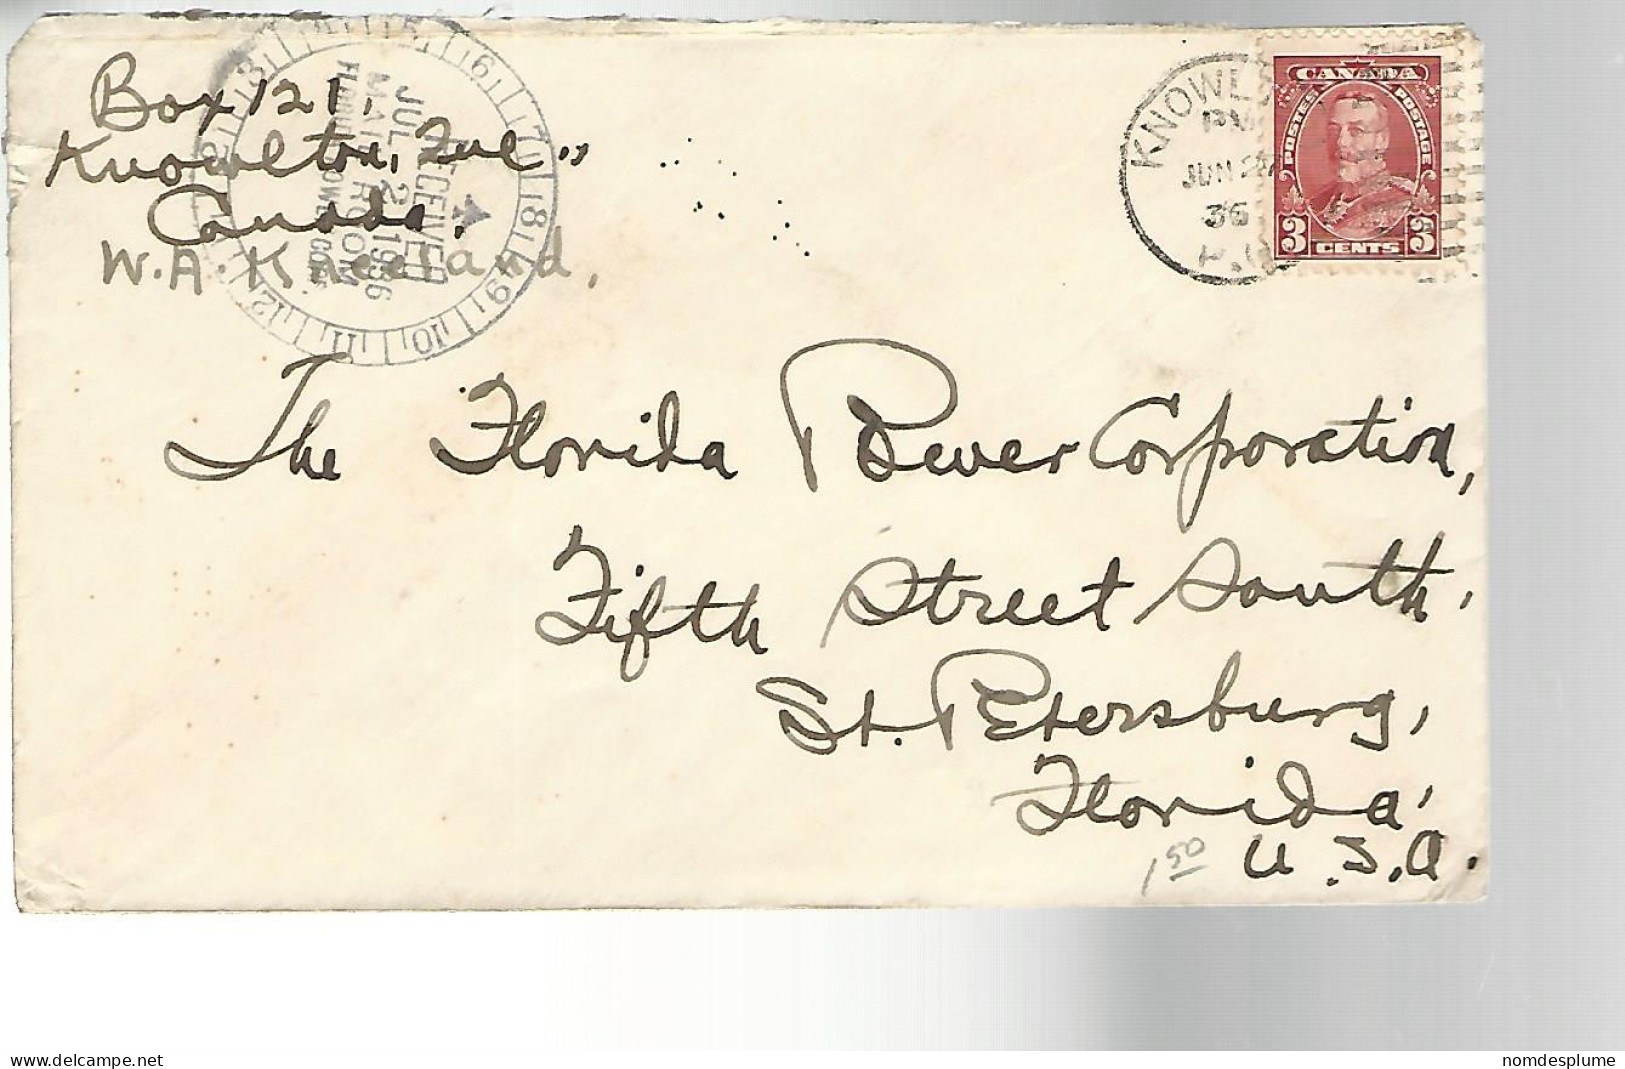 Box 121,
Knowlton, Que
Canada.
W.A. Kneeland,
RECEIVED
JUL 2 1936
MAIL ROOM
FLORIDA POWER CORP.
5 6 7 8 9 10 11 12
KNOWL
JUN
36
P.Q
CANADA
POSTES POSTAGE
3 CENTS 3
The Florida Power Corporation,
Fifth Street South,
St. Petersburg,
Florida,
U.S.A.
1 50
www.delcampe.net
nomdesplume